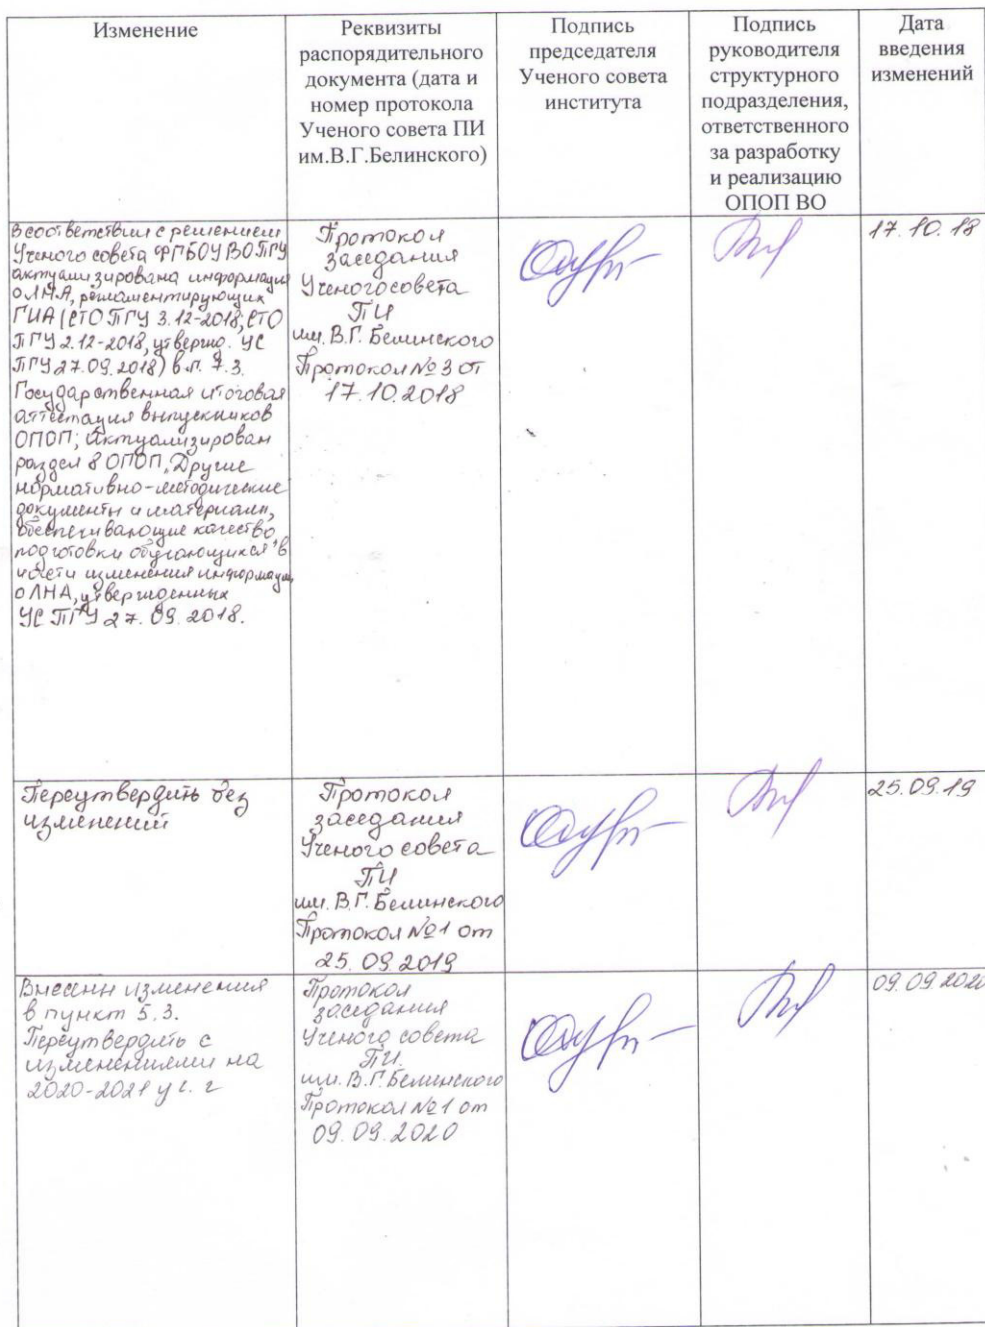 Изменение
Реквизиты
распорядительного
документа (дата и
номер протокола
Ученого совета ПИ
им.В.Г.Белинского)
Подпись
председателя
Ученого совета
института
Подпись
руководителя
структурного
подразделения,
ответственного
за разработку
и реализацию
ОПОП ВО
Дата
введения
изменений
В соответствии с решением
Ученого совета ФГБОУ ВО ПГУ
актуализирована информация
о ЛНА, регламентирующих
ГИА (СТО ПГУ 3.12-2018, СТО
ПГУ 2.12-2018, утвержд. УС
ПГУ 27.09.2018) в п. 7.3.
Государственная итоговая
аттестация выпускников
ОПОП; Актуализирован
раздел 8 ОПОП „Другие
нормативно-методические
документы и материалы,
обеспечивающие качество
подготовки обучающихся" в
части изменения информации
о ЛНА, утвержденных
УС ПГУ 27.09.2018.
Протокол
заседания
Ученого совета
ПИ
им. В.Г. Белинского
Протокол № 3 от
17.10.2018
17.10.18
Переутвердить без
изменений
Протокол
заседания
Ученого совета
ПИ
им. В.Г. Белинского
Протокол №1 от
25.09.2019
25.09.19
Внесены изменения
в пункт 5.3.
Переутвердить с
изменениями на
2020-2021 уч. г
Протокол
заседания
Ученого совета
ПИ.
им. В.Г. Белинского
Протокол №1 от
09.09.2020
09.09.2020